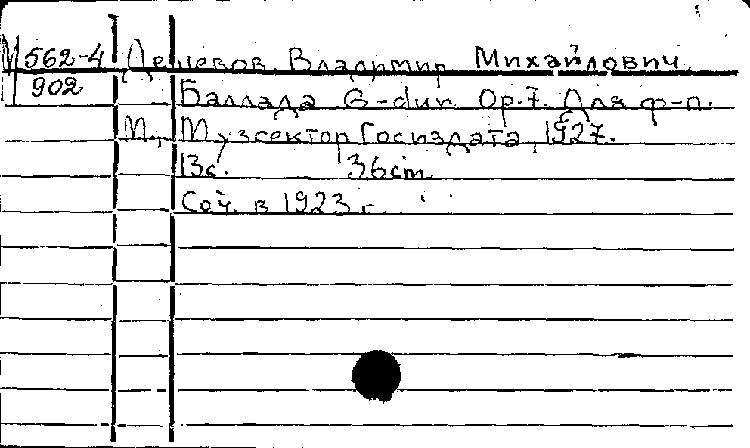 М 562-4 Дешевов Владимир Михайлович
902
Баллада G-dur. Op.7. Для ф-п.
М., Музсектор Госиздата, 1927.
13с. 36cm
Соч. в 1923 г.